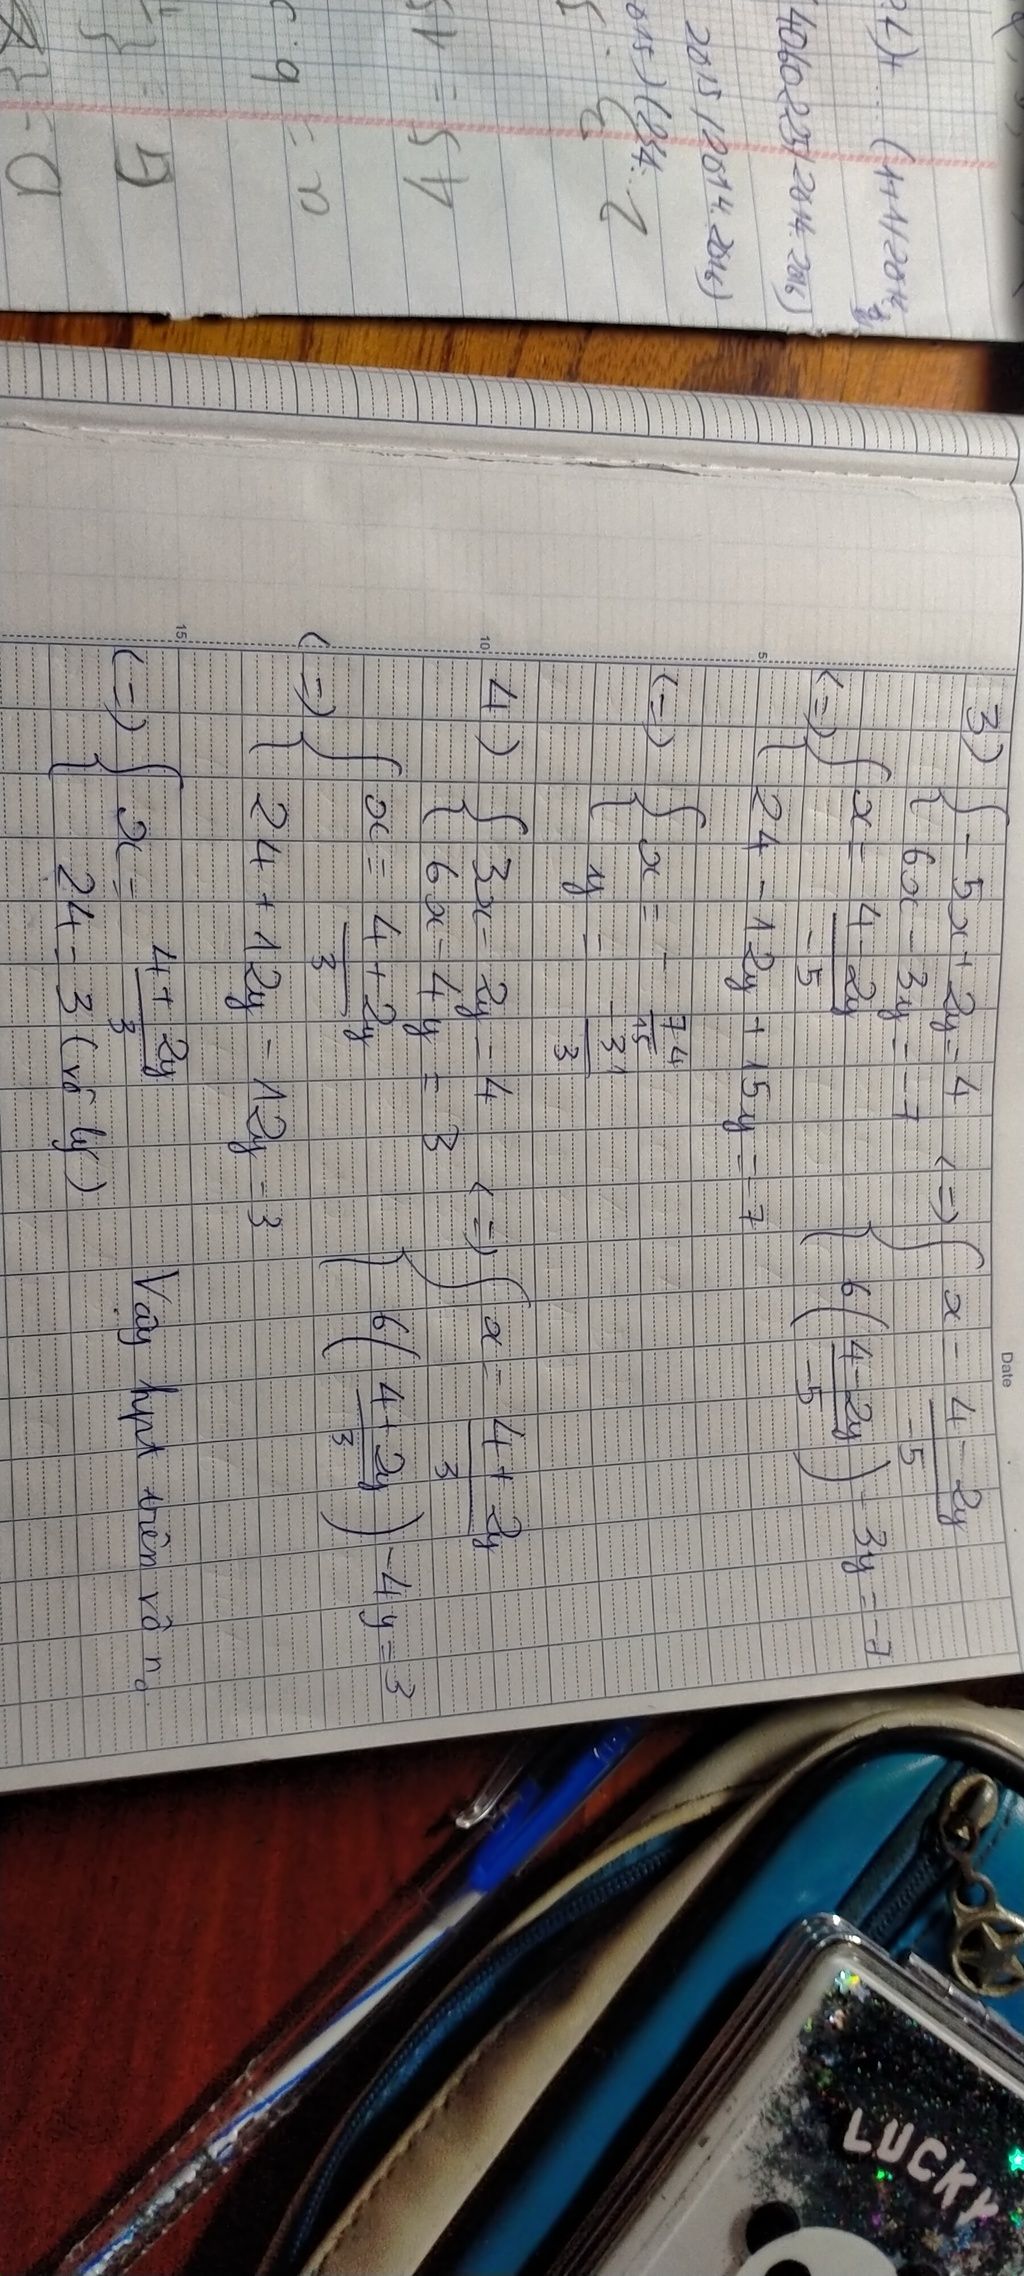 Date
3) { -5x + 2y = 4 <=> { x = 4 - 2y / -5
6x - 3y = -7 6( 4 - 2y / -5 ) - 3y = -7
<=> { x = 4 - 2y / -5
24 - 12y + 15y = -7
<=> { x = - 74 / 15
y = -31 / 3
4) { 3x - 2y = 4 <=> { x = 4 + 2y / 3
6x - 4y = 3 6( 4 + 2y / 3 ) - 4y = 3
<=> { x = 4 + 2y / 3
24 + 12y - 12y = 3
<=> { x = 4 + 2y / 3
24 = 3 (vô lý) Vậy hpt trên vô n0
5
10
15
(1+1+2014
4060225+2014.2016)
2015 (2014.2016)
LUCKY